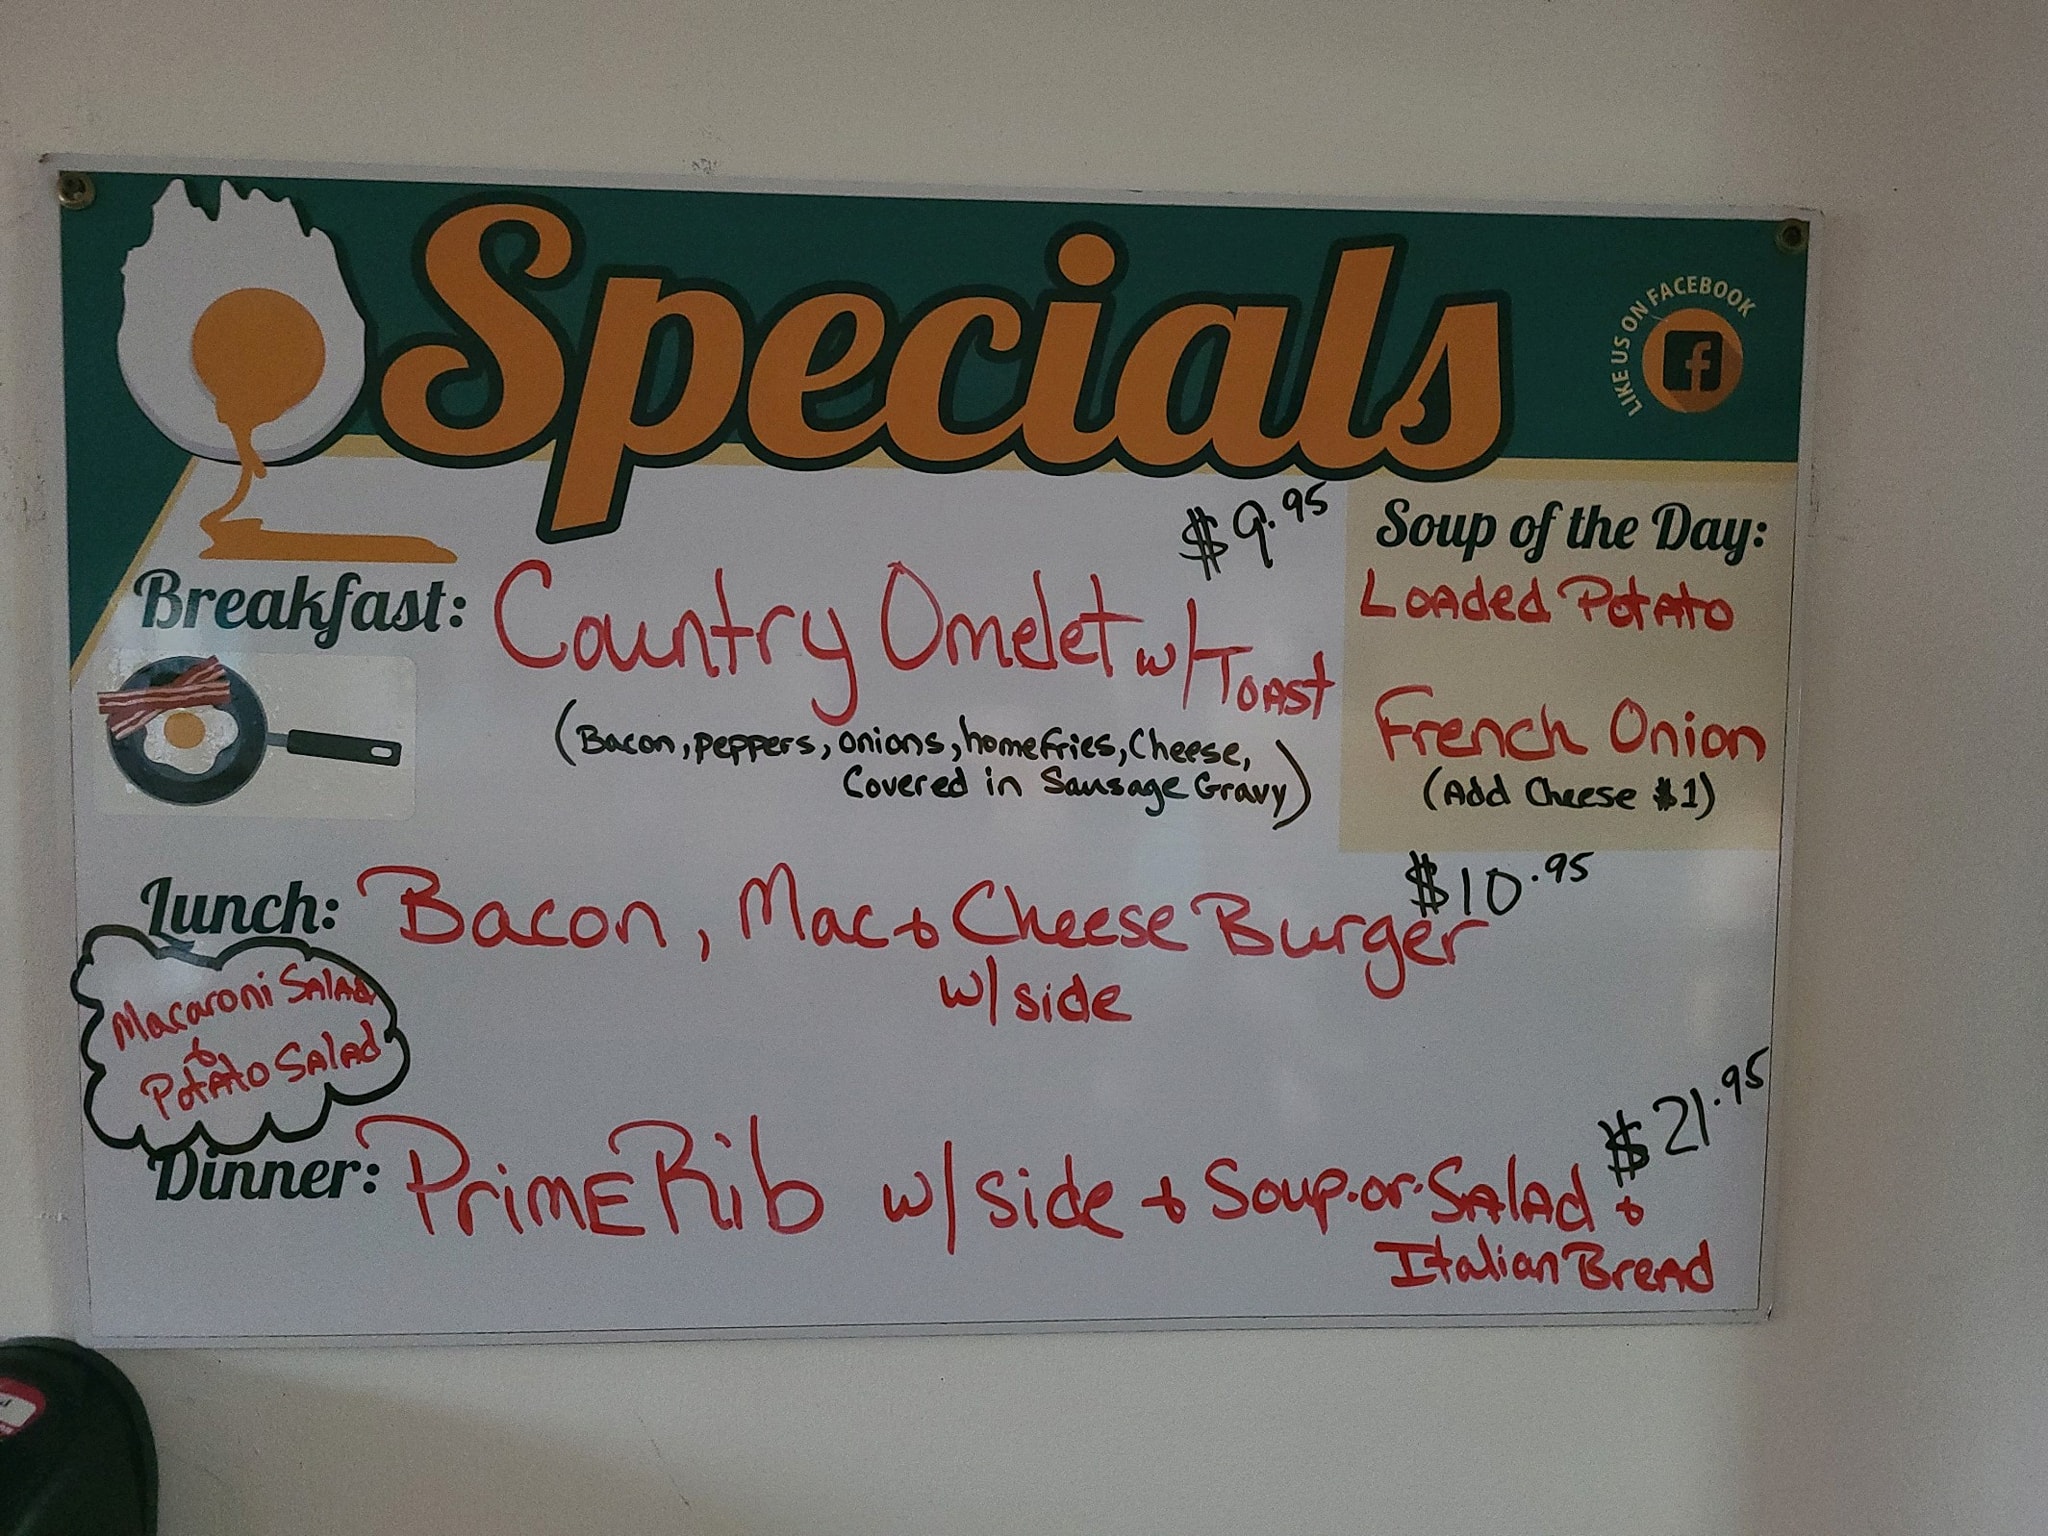 Specials
LIKE US ON FACEBOOK
f
$9.95
Breakfast: Country Omelet w/Toast
(Bacon, peppers, onions, homefries, Cheese,
Covered in Sausage Gravy)
Soup of the Day:
Loaded Potato
French Onion
(Add Cheese $1)
$10.95
Lunch: Bacon, Mac + Cheese Burger
w/side
Macaroni Salad
+
Potato Salad
$21.95
Dinner: Prime Rib w/side + Soup.or.Salad +
Italian Bread